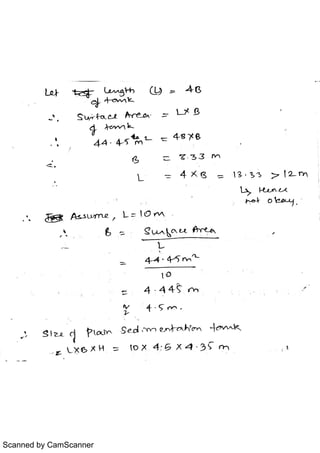 Let length (L) = 4B
of tank
∴ Surface Area = L×B
of tank
∴ 44.45 m² = 4B×B
B = 3.33 m
L = 4×B = 13.33 > 12m
↳ Hence
not okay.
∴ Assume, L = 10m
∴ B = Surface Area
L
= 44.45 m²
10
= 4.445 m
≈ 4.5 m.
∴ Size of Plain Sedimentation tank
= L×B×H = 10 × 4.5 × 4.35 m
Scanned by CamScanner